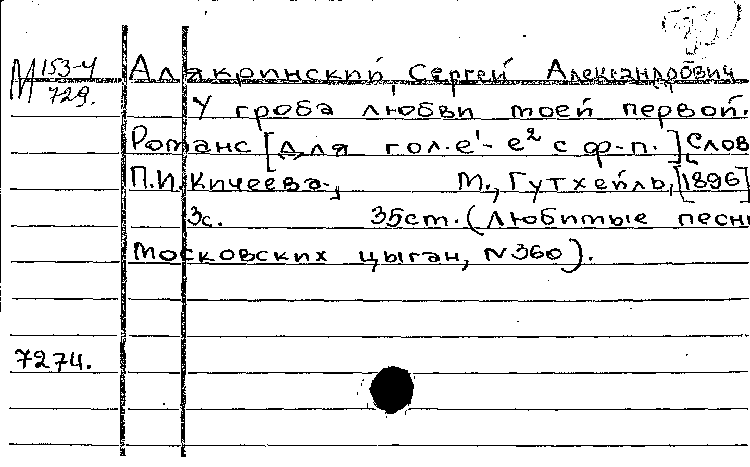 М 153-4/729. Алякринский, Сергей Александрович
У гроба любви моей первой.
Романс [для гол. e¹- e² с ф-п.] Слов
П.И. Кичеева., М., Гутхейль, [1896]
3с. 35ст. (Любимые песни
московских цыган, N 360).
7274.